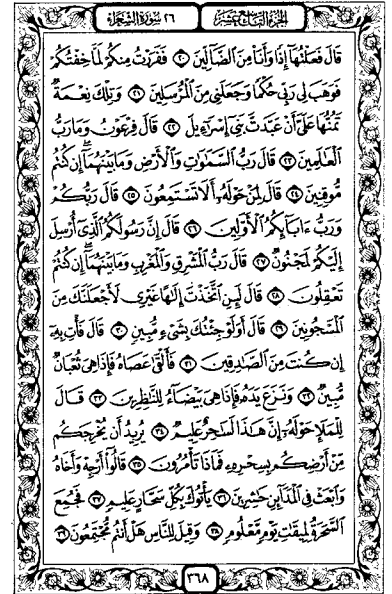 الجزء التاسع عشر ٢٦ سورة الشعراء
قَالَ فَعَلْتُهَا إِذًا وَأَنَا۠ مِنَ الضَّآلِّينَ ٢٠ فَفَرَرْتُ مِنكُمْ لَمَّا خِفْتُكُمْ
فَوَهَبَ لِى رَبِّى حُكْمًا وَجَعَلَنِى مِنَ الْمُرْسَلِينَ ٢١ وَتِلْكَ نِعْمَةٌ
تَمُنُّهَا عَلَىَّ أَنْ عَبَّدتَّ بَنِىٓ إِسْرَٰٓءِيلَ ٢٢ قَالَ فِرْعَوْنُ وَمَا رَبُّ
الْعَٰلَمِينَ ٢٣ قَالَ رَبُّ السَّمَٰوَٰتِ وَالْأَرْضِ وَمَا بَيْنَهُمَآ إِن كُنتُم
مُّوقِنِينَ ٢٤ قَالَ لِمَنْ حَوْلَهُۥٓ أَلَا تَسْتَمِعُونَ ٢٥ قَالَ رَبُّكُمْ
وَرَبُّ ءَابَآئِكُمُ الْأَوَّلِينَ ٢٦ قَالَ إِنَّ رَسُولَكُمُ الَّذِىٓ أُرْسِلَ
إِلَيْكُمْ لَمَجْنُونٌ ٢٧ قَالَ رَبُّ الْمَشْرِقِ وَالْمَغْرِبِ وَمَا بَيْنَهُمَآ إِن كُنتُمْ
تَعْقِلُونَ ٢٨ قَالَ لَئِنِ اتَّخَذْتَ إِلَٰهًا غَيْرِى لَأَجْعَلَنَّكَ مِنَ
الْمَسْجُونِينَ ٢٩ قَالَ أَوَلَوْ جِئْتُكَ بِشَىْءٍ مُّبِينٍ ٣٠ قَالَ فَأْتِ بِهِۦٓ
إِن كُنتَ مِنَ الصَّٰدِقِينَ ٣١ فَأَلْقَىٰ عَصَاهُ فَإِذَا هِىَ ثُعْبَانٌ
مُّبِينٌ ٣٢ وَنَزَعَ يَدَهُۥ فَإِذَا هِىَ بَيْضَآءُ لِلنَّٰظِرِينَ ٣٣ قَالَ
لِلْمَلَإِ حَوْلَهُۥٓ إِنَّ هَٰذَا لَسَٰحِرٌ عَلِيمٌ ٣٤ يُرِيدُ أَن يُخْرِجَكُم
مِّنْ أَرْضِكُم بِسِحْرِهِۦ فَمَاذَا تَأْمُرُونَ ٣٥ قَالُوٓا۟ أَرْجِهْ وَأَخَاهُ
وَابْعَثْ فِى الْمَدَآئِنِ حَٰشِرِينَ ٣٦ يَأْتُوكَ بِكُلِّ سَحَّارٍ عَلِيمٍ ٣٧ فَجُمِعَ
السَّحَرَةُ لِمِيقَٰتِ يَوْمٍ مَّعْلُومٍ ٣٨ وَقِيلَ لِلنَّاسِ هَلْ أَنتُم مُّجْتَمِعُونَ ٣٩
٣٦٨